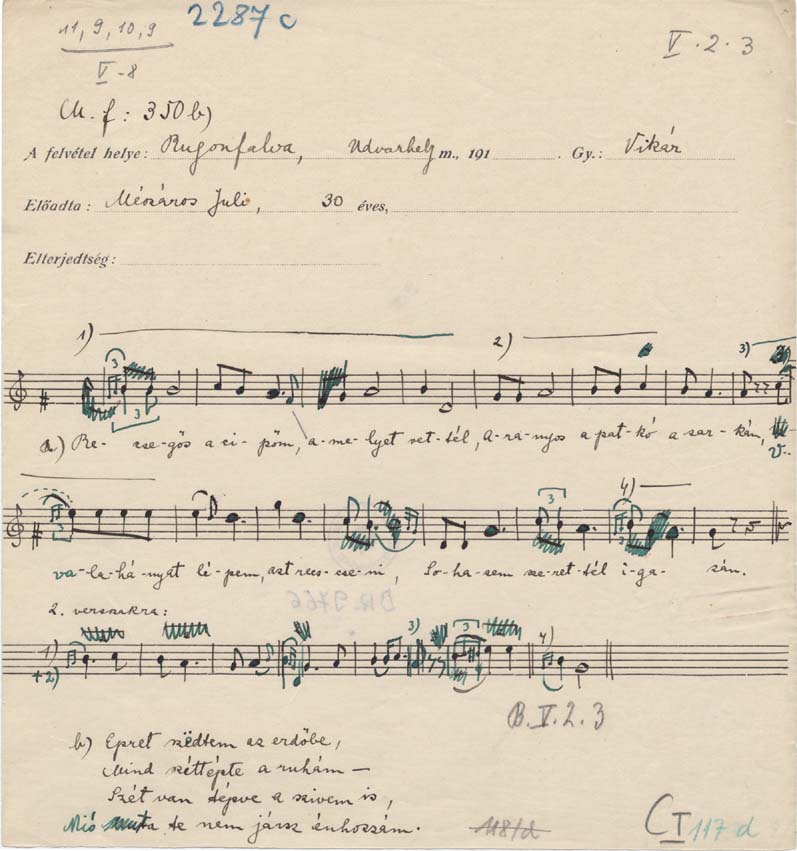 2287 c
11, 9, 10, 9
V-8
V. 2. 3
M. f: 350 b)
A felvétel helye: Rugonfalva, Udvarhely m., 191 . Gy.: Vikár
Előadta: Mészáros Juli, 30 éves,
Elterjedtség:
1) 2) 3)
3 3
a.) Re- cse-gös a ci-pöm, a-me-lyet vet-tél, A-ra-nyos a pat-kó a sar-kán, V..
4)
3
va-la-há-nyat lé-pem, azt recs-cse-ni, So-ha-sem sze-ret-tél i-ga- zán.
DR. 9766
2. versszakra:
1) +2) 3) 3 4)
B. V. 2. 3
b) Epret szëdtem az erdőbe,
Mind széttépte a ruhám –
Szét van tépve a szivem is,
Mió ta te nem jársz énhozzám.
118/d
C I 117 d